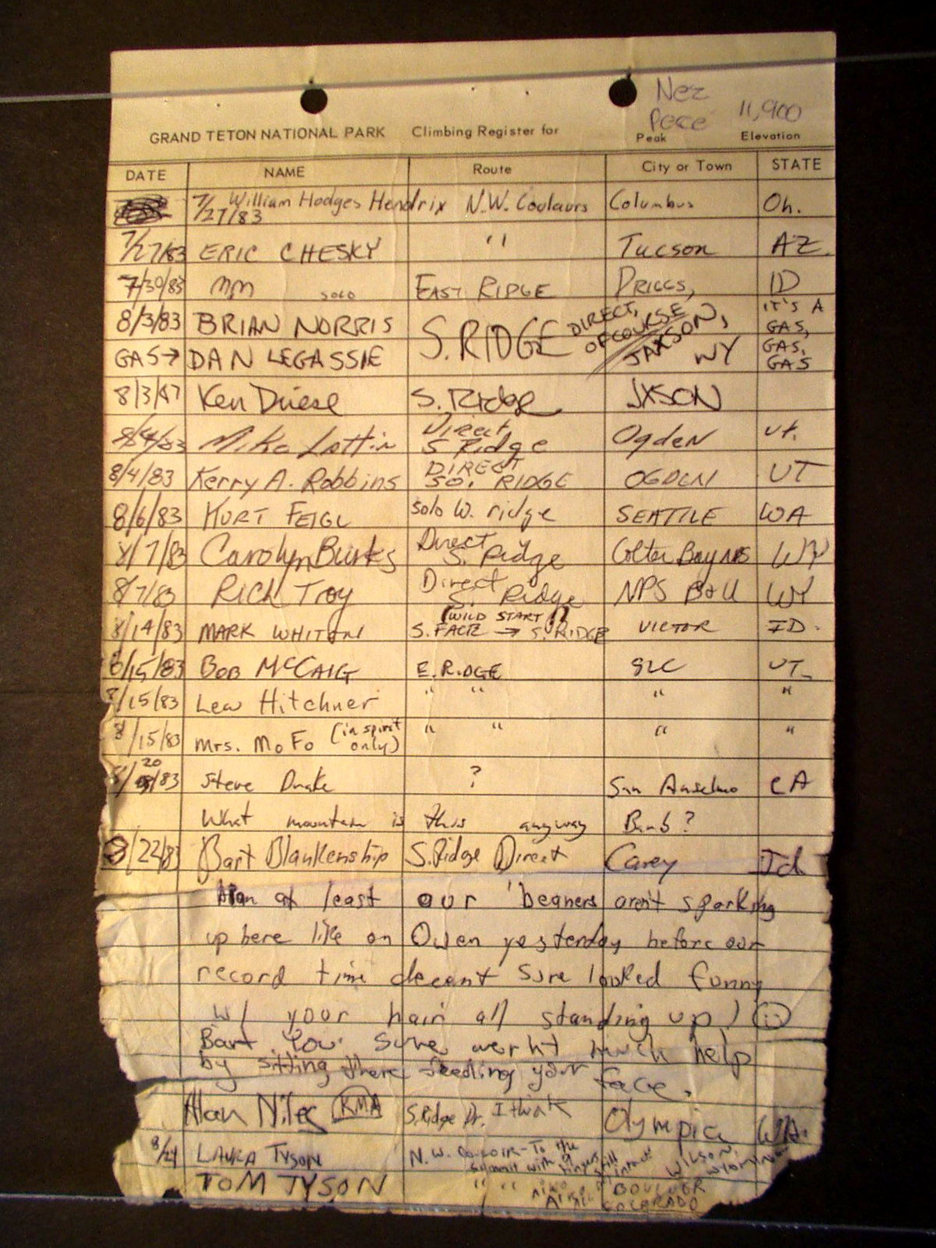 Nez
Pece 11,900
GRAND TETON NATIONAL PARK Climbing Register for Peak Elevation
DATE NAME Route City or Town STATE
7/27/83 William Hodges Hendrix N.W. Coulours Columbus Oh.
7/27/83 ERIC CHESKY " Tucson AZ.
7/30/83 mm solo EAST RIDGE DRIGGS, ID
8/3/83 BRIAN NORRIS S. RIDGE DIRECT, OF COURSE JAXSON, WY IT'S A GAS,
GAS→ DAN LEGASSIE GAS, GAS
8/3/87 Ken Driese S. Ridge JXSON
8/4/83 Mike Lattin Direct S Ridge Ogden Ut.
8/4/83 Kerry A. Robbins DIRECT SO. RIDGE OGDEN UT
8/6/83 KURT FEIGL Solo W. ridge SEATTLE WA
8/7/83 Carolyn Burks Direct S. Ridge Colter Bay NPS WY
8/7/83 RICH TROY Direct S. Ridge NPS B&U WY
8/14/83 MARK WHITON S. FACE → S. RIDGE (WILD START!) VICTOR ID.
8/15/83 BOB MCCAIG E. RIDGE SLC UT
8/15/83 Lew Hitchner " " " "
8/15/83 Mrs. MoFo (in spirit only) " " " "
8/20/83 Steve Drake ? San Anselmo CA
What mountain is this anyway Barb?
8/22/83 Bart Blankenship S. Ridge Direct Carey Id.
Man at least our 'beaners aren't sparking
up here like on Owen yesterday before our
record time decent Sure looked funny
w/ your hair all standing up!
Bart You sure weren't much help
by sitting there feeding your face.
Alan Niles KMA S. Ridge Dr. I think Olympia WA.
8/24 LAURA TYSON N.W. Couloir - To the summit with WILSON, WYOMING
TOM TYSON " " BOULDER COLORADO